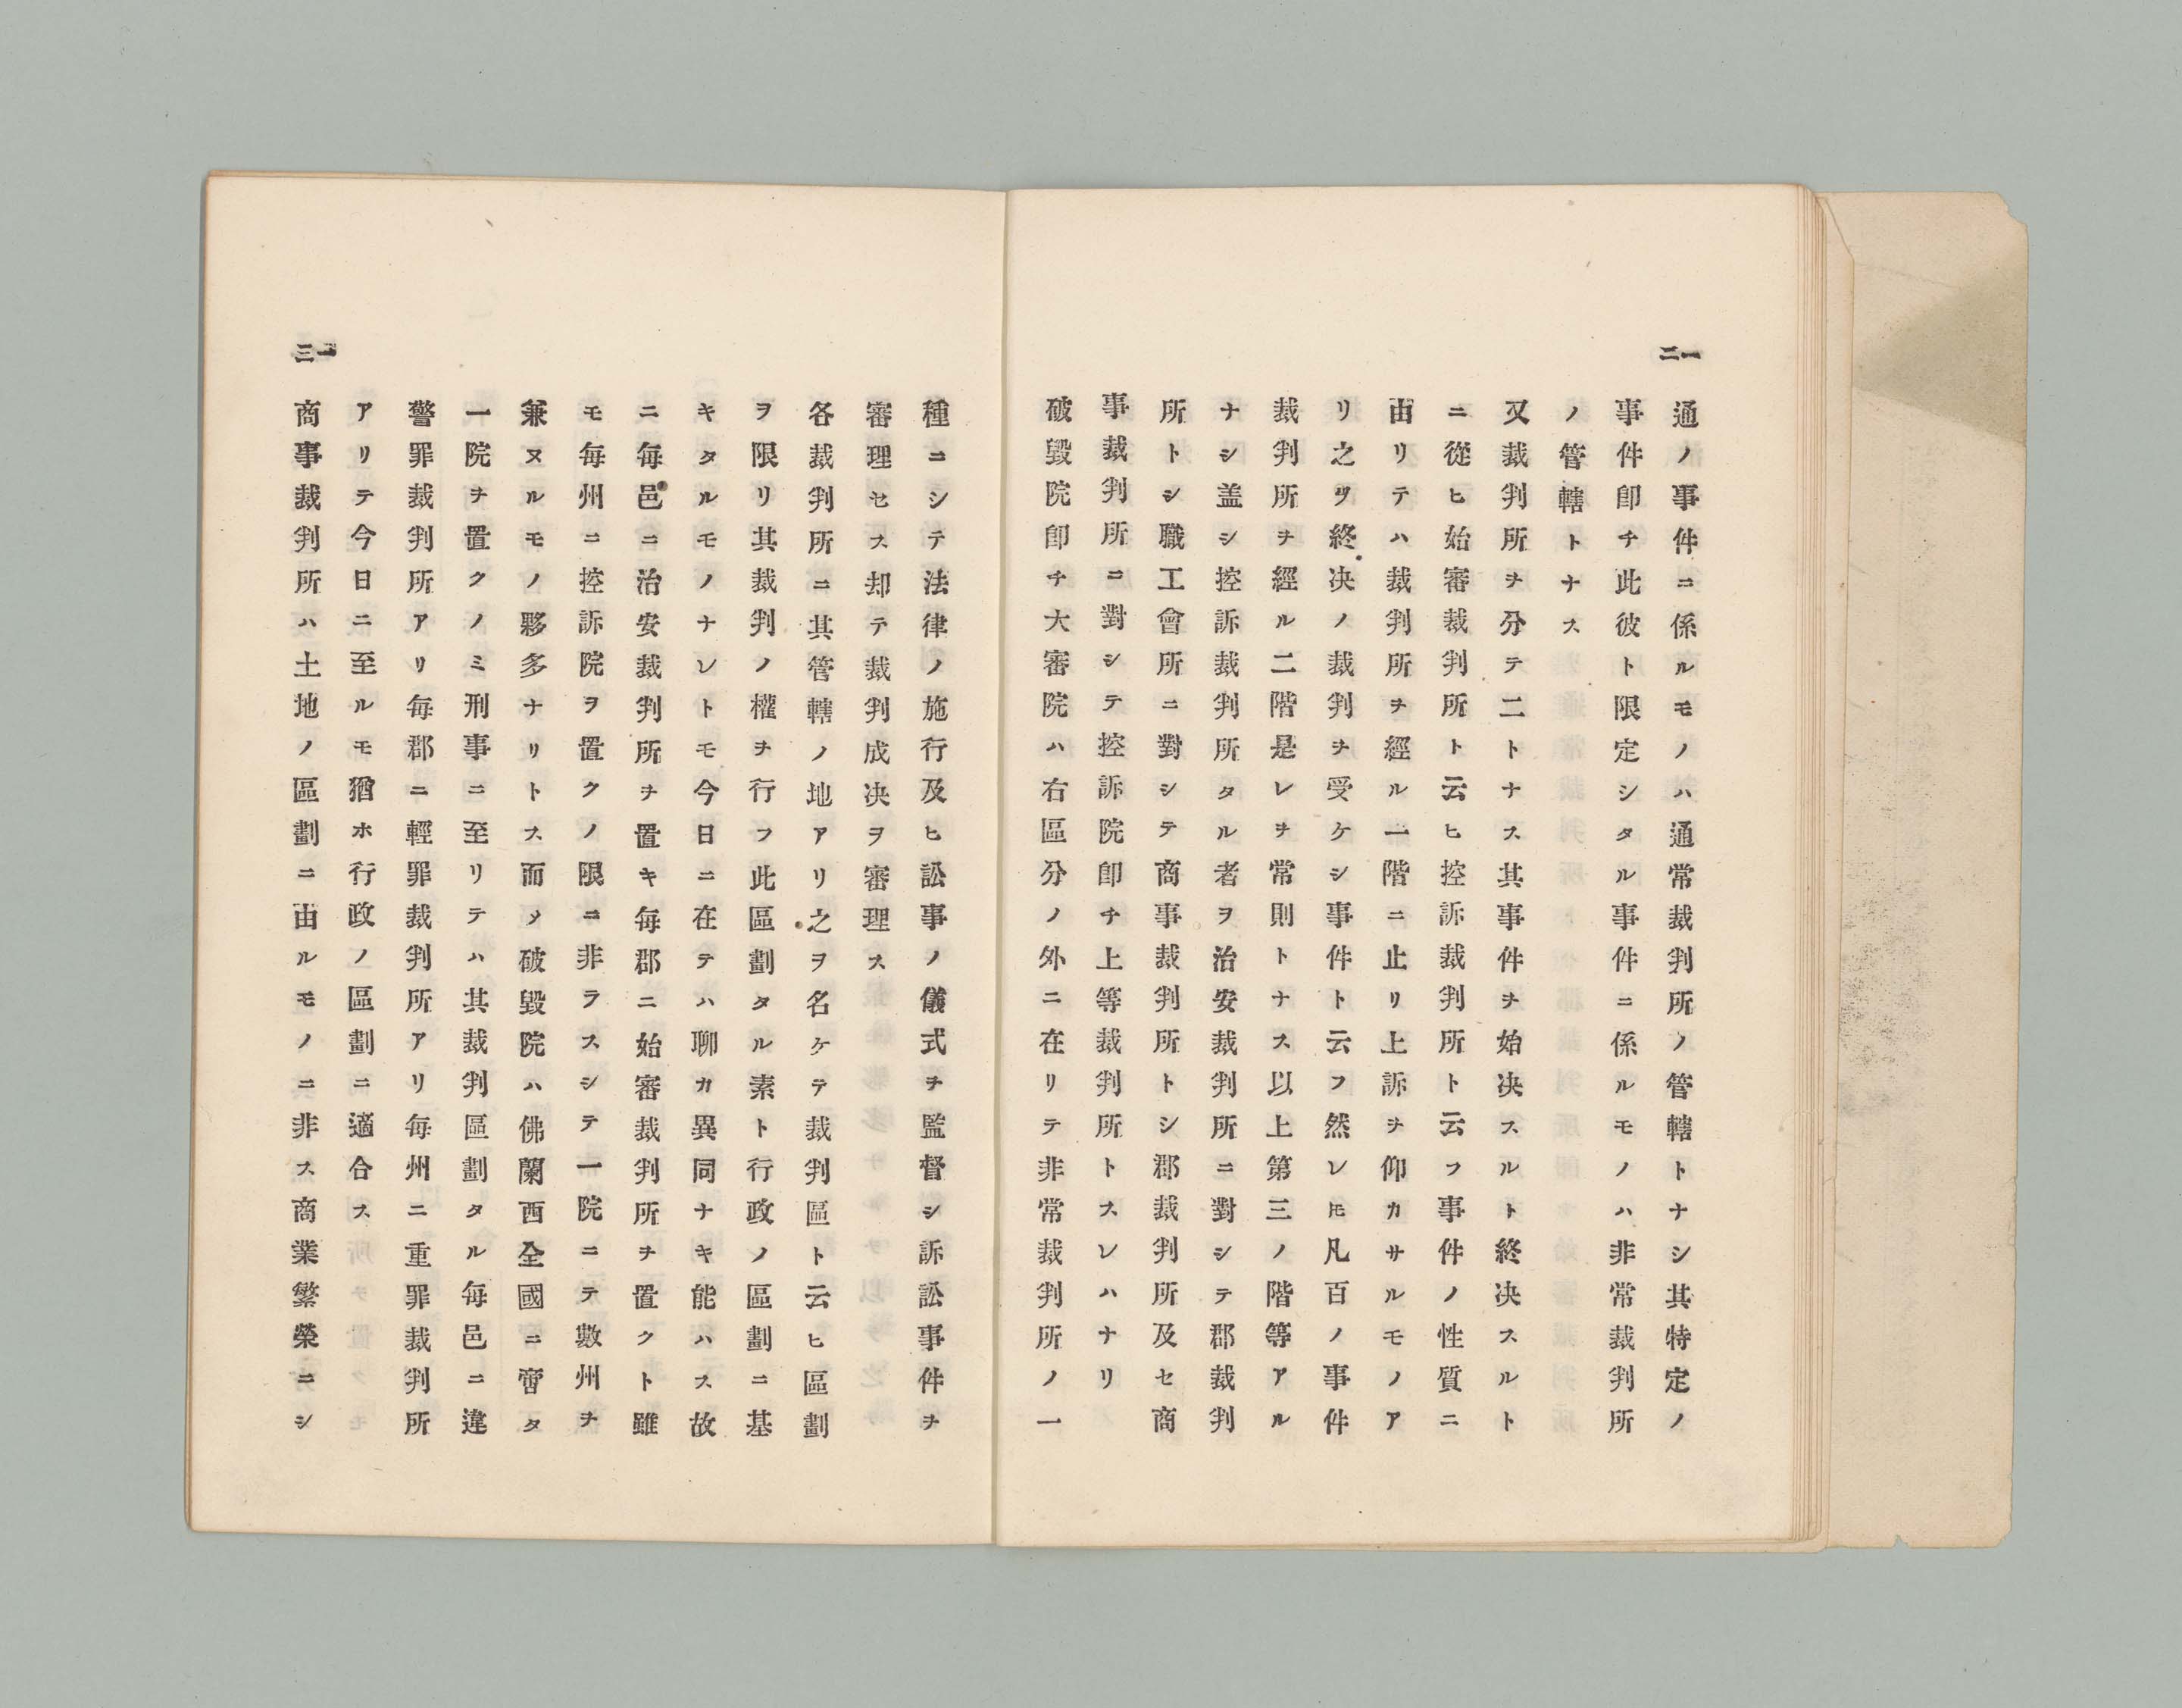 一二
通ノ事件ニ係ルモノハ通常裁判所ノ管轄トナシ其特定ノ
事件卽チ此彼ト限定シタル事件ニ係ルモノハ非常裁判所
ノ管轄トナス
又裁判所ヲ分テ二トナス其事件ヲ始决スルト終决スルト
ニ從ヒ始審裁判所ト云ヒ控訴裁判所ト云フ事件ノ性質ニ
由リテハ裁判所ヲ經ル一階ニ止リ上訴ヲ仰カサルモノア
リ之ヲ終决ノ裁判ヲ受ケシ事件ト云フ然レ𪜈凡百ノ事件
裁判所ヲ經ル二階是レヲ常則トナス以上第三ノ階等アル
ナシ盖シ控訴裁判所タル者ヲ治安裁判所ニ對シテ郡裁判
所トシ職工會所ニ對シテ商事裁判所トシ郡裁判所及セ商
事裁判所ニ對シテ控訴院卽チ上等裁判所トスレハナリ
破毀院卽チ大審院ハ右區分ノ外ニ在リテ非常裁判所ノ一
一三
種ニシテ法律ノ施行及ヒ訟事ノ儀式ヲ監督シ訴訟事件ヲ
審理セス却テ裁判成决ヲ審理ス
各裁判所ニ其管轄ノ地アリ之ヲ名ケテ裁判區ト云ヒ區劃
ヲ限リ其裁判ノ權ヲ行フ此區劃タル素ト行政ノ區劃ニ基
キタルモノナレトモ今日ニ在テハ聊カ異同ナキ能ハス故
ニ毎邑ニ治安裁判所ヲ置キ毎郡ニ始審裁判所ヲ置クト雖
モ毎州ニ控訴院ヲ置クノ限ニ非ラスシテ一院ニテ數州ヲ
兼ヌルモノ夥多ナリトス而メ破毀院ハ佛蘭西全國ニ啻タ
一院ヲ置クノミ刑事ニ至リテハ其裁判區劃タル毎邑ニ違
警罪裁判所アリ毎郡ニ輕罪裁判所アリ毎州ニ重罪裁判所
アリテ今日ニ至ルモ猶ホ行政ノ區劃ニ適合ス
商事裁判所ハ土地ノ區劃ニ由ルモノニ非ス商業繁榮ニシ